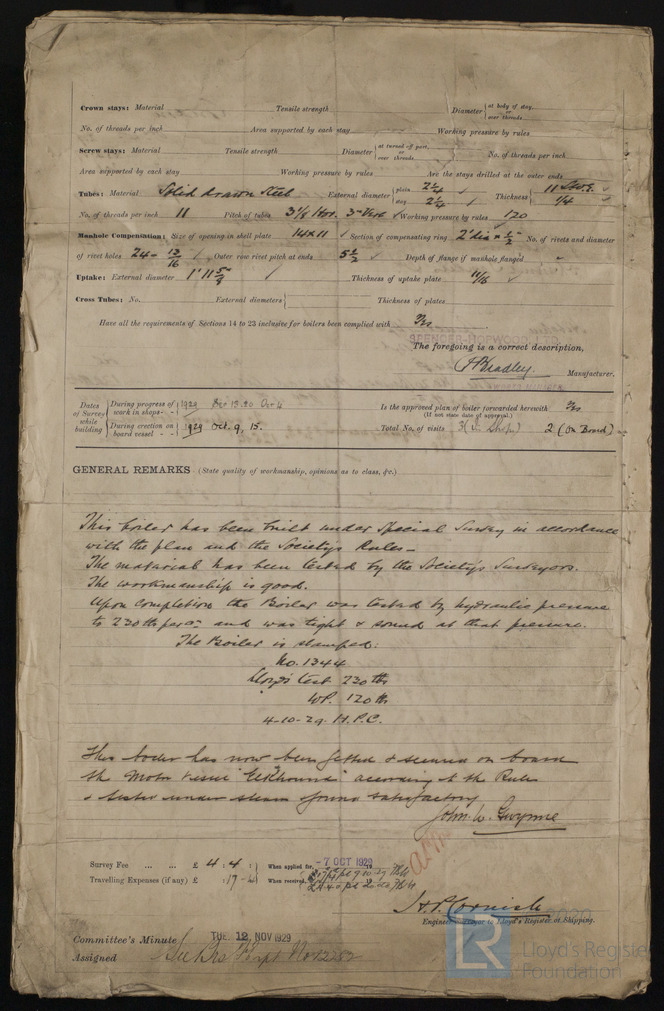 Crown stays: Material Tensile strength Diameter { at body of stay, or over threads
No. of threads per inch Area supported by each stay Working pressure by rules
Screw stays: Material Tensile strength Diameter { at turned off part, or over threads No. of threads per inch
Area supported by each stay Working pressure by rules Are the stays drilled at the outer ends
Tubes: Material Solid drawn Steel External diameter { plain 2 1/4 stay 2 1/4 Thickness { 11 SWG 1/4
No. of threads per inch 11 Pitch of tubes 3 1/8 Hor. 3" Vert Working pressure by rules 120
Manhole Compensation: Size of opening in shell plate 14 x 11 Section of compensating ring 2' dia x 1/2 No. of rivets and diameter
of rivet holes 24 - 13/16 Outer row rivet pitch at ends 5 1/2 Depth of flange if manhole flanged "
Uptake: External diameter 1' 11 5/8 Thickness of uptake plate 11/16
Cross Tubes: No. External diameters { Thickness of plates
Have all the requirements of Sections 14 to 23 inclusive for boilers been complied with Yes
The foregoing is a correct description,
Bradley. Manufacturer.
Dates of Survey while building { During progress of work in shops - - } 1929 Sep 13. 20 Oct 4 Is the approved plan of boiler forwarded herewith Yes
(If not state date of approval.)
{ During erection on board vessel - - } 1929 Oct. 9, 15. Total No. of visits 3 (in Shop) 2 (on Board)
GENERAL REMARKS (State quality of workmanship, opinions as to class, &c.)
This boiler has been built under Special Survey in accordance
with the plan and the Society's Rules -
The material has been tested by the Society's Surveyors.
The workmanship is good.
Upon completion the Boiler was tested by hydraulic pressure
to 230 lbs per □" and was tight & sound at that pressure.
The Boiler is stamped:
No. 1344
Lloyd's test 230 lbs
W.P. 120 lbs
4-10-29. H.P.C.
This boiler has now been fitted & secured on board
the Motor Vessel "Elkhound" according to the Rules
& tested under steam found satisfactory
John W. Gwynne
Survey Fee ... ... £ 4 : 4 : When applied for, -7 OCT 1929
Travelling Expenses (if any) £ : 17 - 6 When received,
H.P. Cornish
Engineer Surveyor to Lloyd's Register of Shipping.
Committee's Minute TUE. 12 NOV 1929
Assigned See Bra Rpt No 12252
Lloyd's Register
Foundation